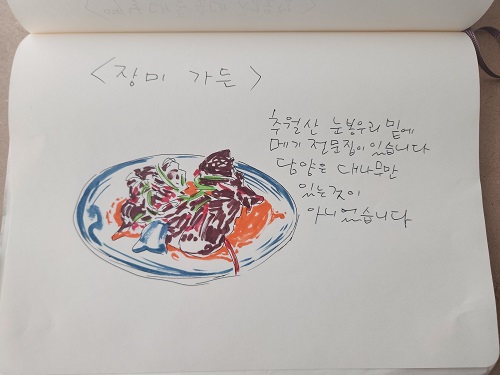 <장미 가든>
추월산 눈봉우리 밑에
메기 전문집이 있습니다
담양은 대나무만
있는 것이
아니었습니다